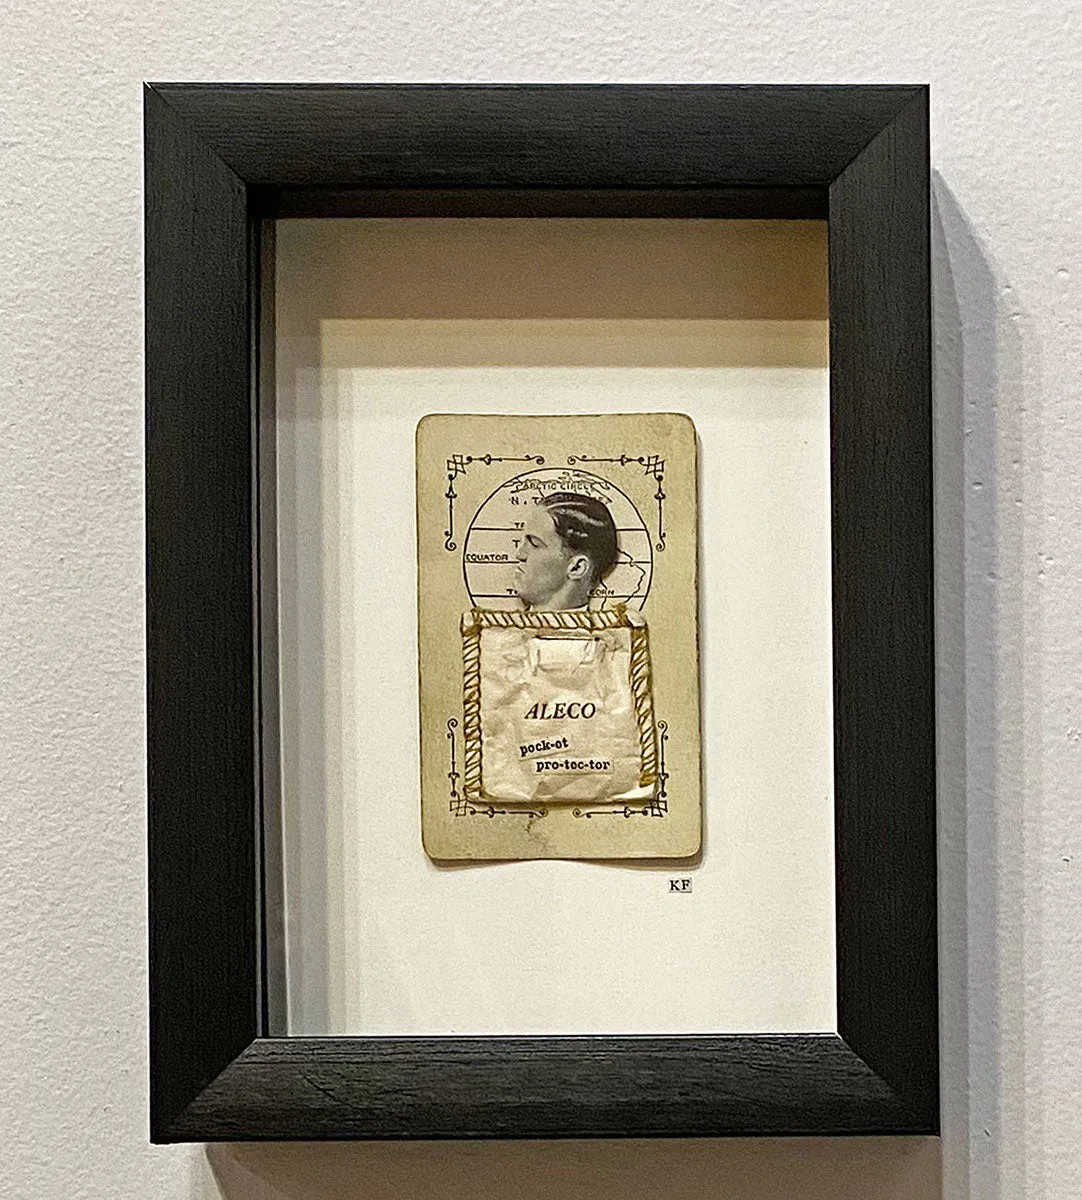 ARCTIC CIRCLE
N. T
EQUATOR
ALECO
pock-et
pro-tec-tor
KF